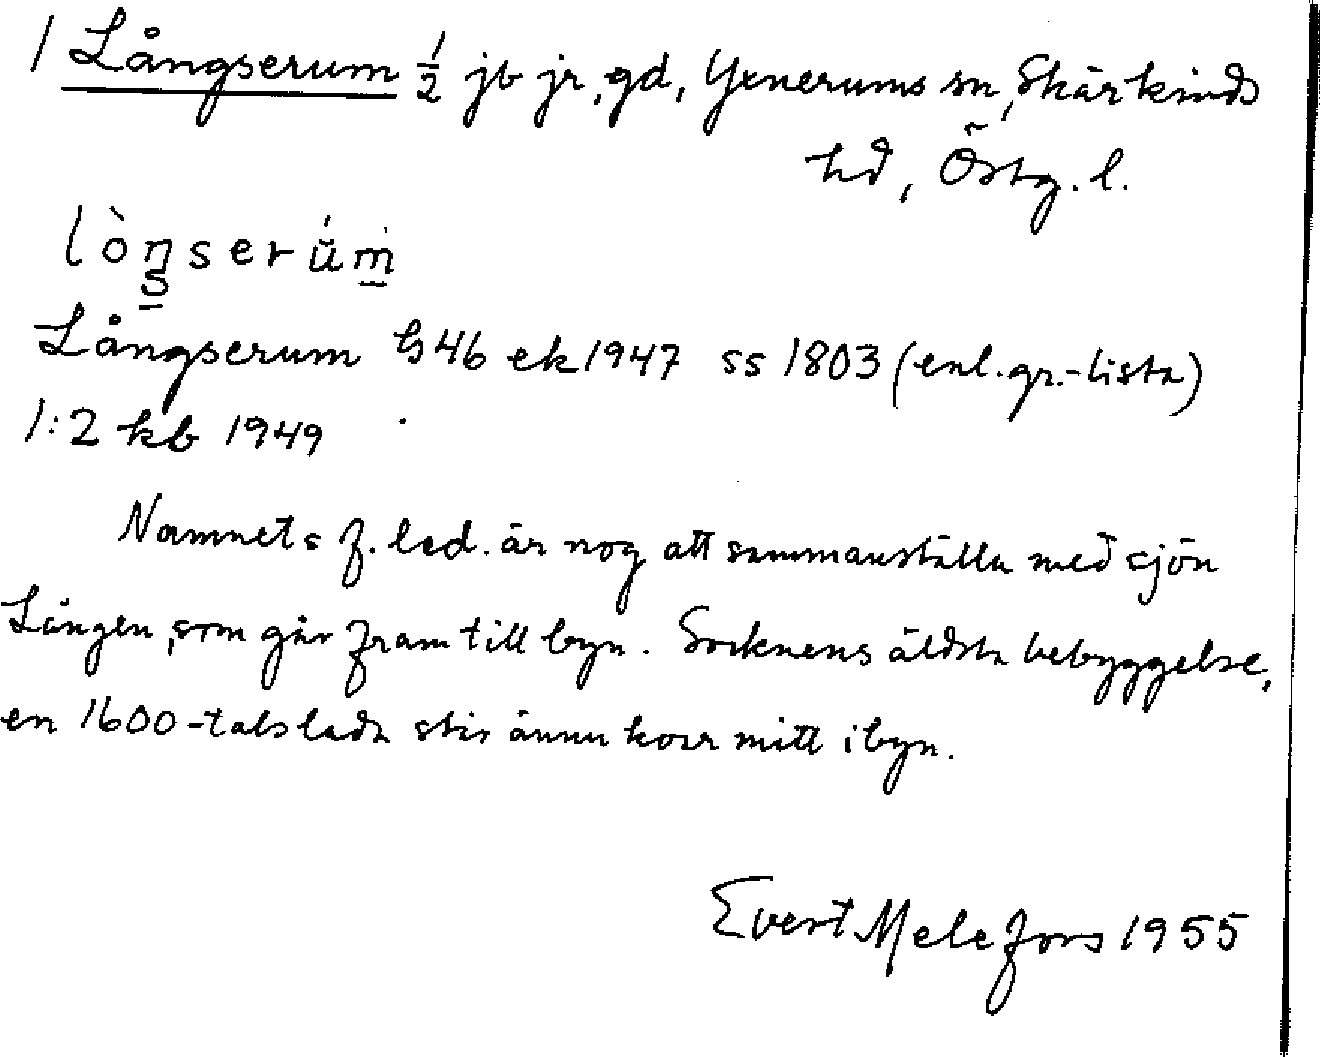 1 Långserum ½ jb jr, gd, Yxnerums sn, Skärkinds
hd, Östg. l.
lòŋserúm
Långserum G46 ek 1947 ss 1803 (enl. gr.-lista)
1:2 kb 1949
Namnets f. led. är nog att sammanställa med sjön
Lången, som går fram till byn. Socknens äldsta bebyggelse,
en 1600-talslada står ännu kvar mitt i byn.
Evert Melefors 1955